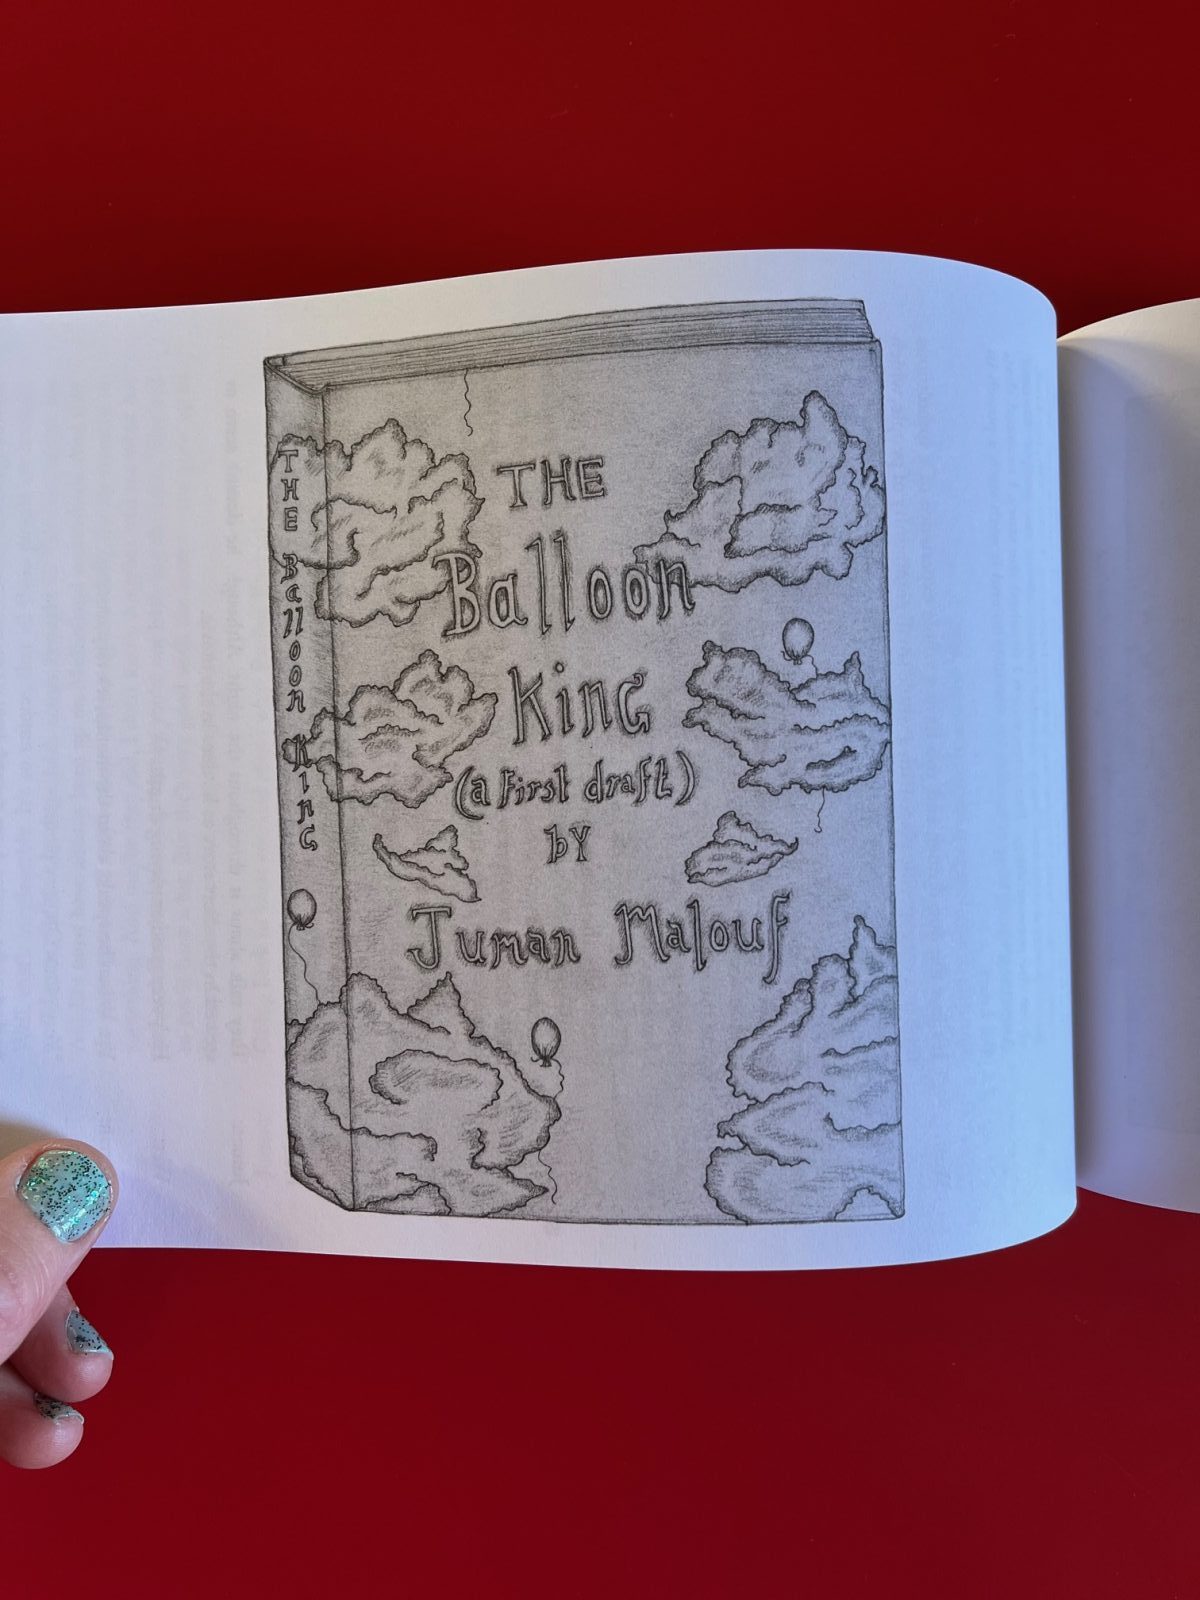 THE Balloon King
THE
Balloon
King
(a first draft)
by
Juman Malouf